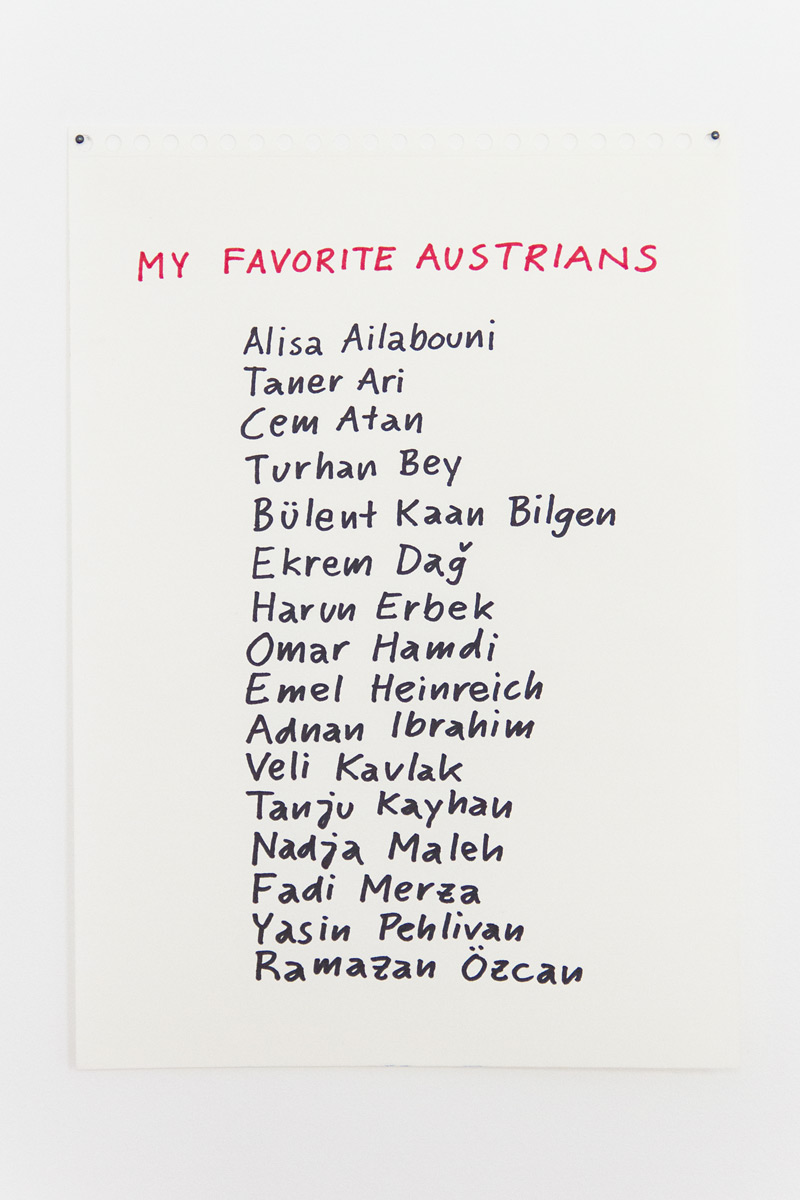 MY FAVORITE AUSTRIANS
Alisa Ailabouni
Taner Ari
Cem Atan
Turhan Bey
Bülent Kaan Bilgen
Ekrem Dağ
Harun Erbek
Omar Hamdi
Emel Heinreich
Adnan Ibrahim
Veli Kavlak
Tanju Kayhan
Nadja Maleh
Fadi Merza
Yasin Pehlivan
Ramazan Özcan